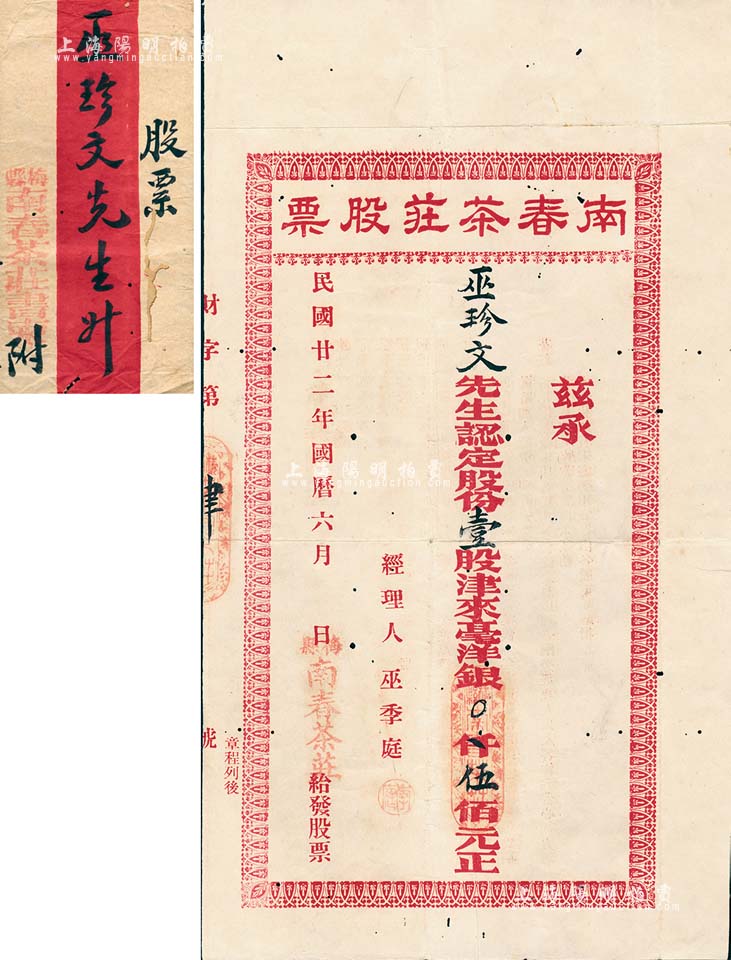 股票
巫珍文先生升
梅縣
南春茶莊
附
上海陽明拍賣
www.yangmingauction.com
南春茶莊股票
茲承
巫珍文先生認定股份壹股津來毫洋銀0仟伍佰元正
經理人 巫季庭
民國廿二年國曆六月 日
梅縣
南春茶莊
給發股票
章程列後
財字第 號
上海陽明拍賣
www.yangmingauction.com
上海陽明拍賣
www.yangmingauction.com